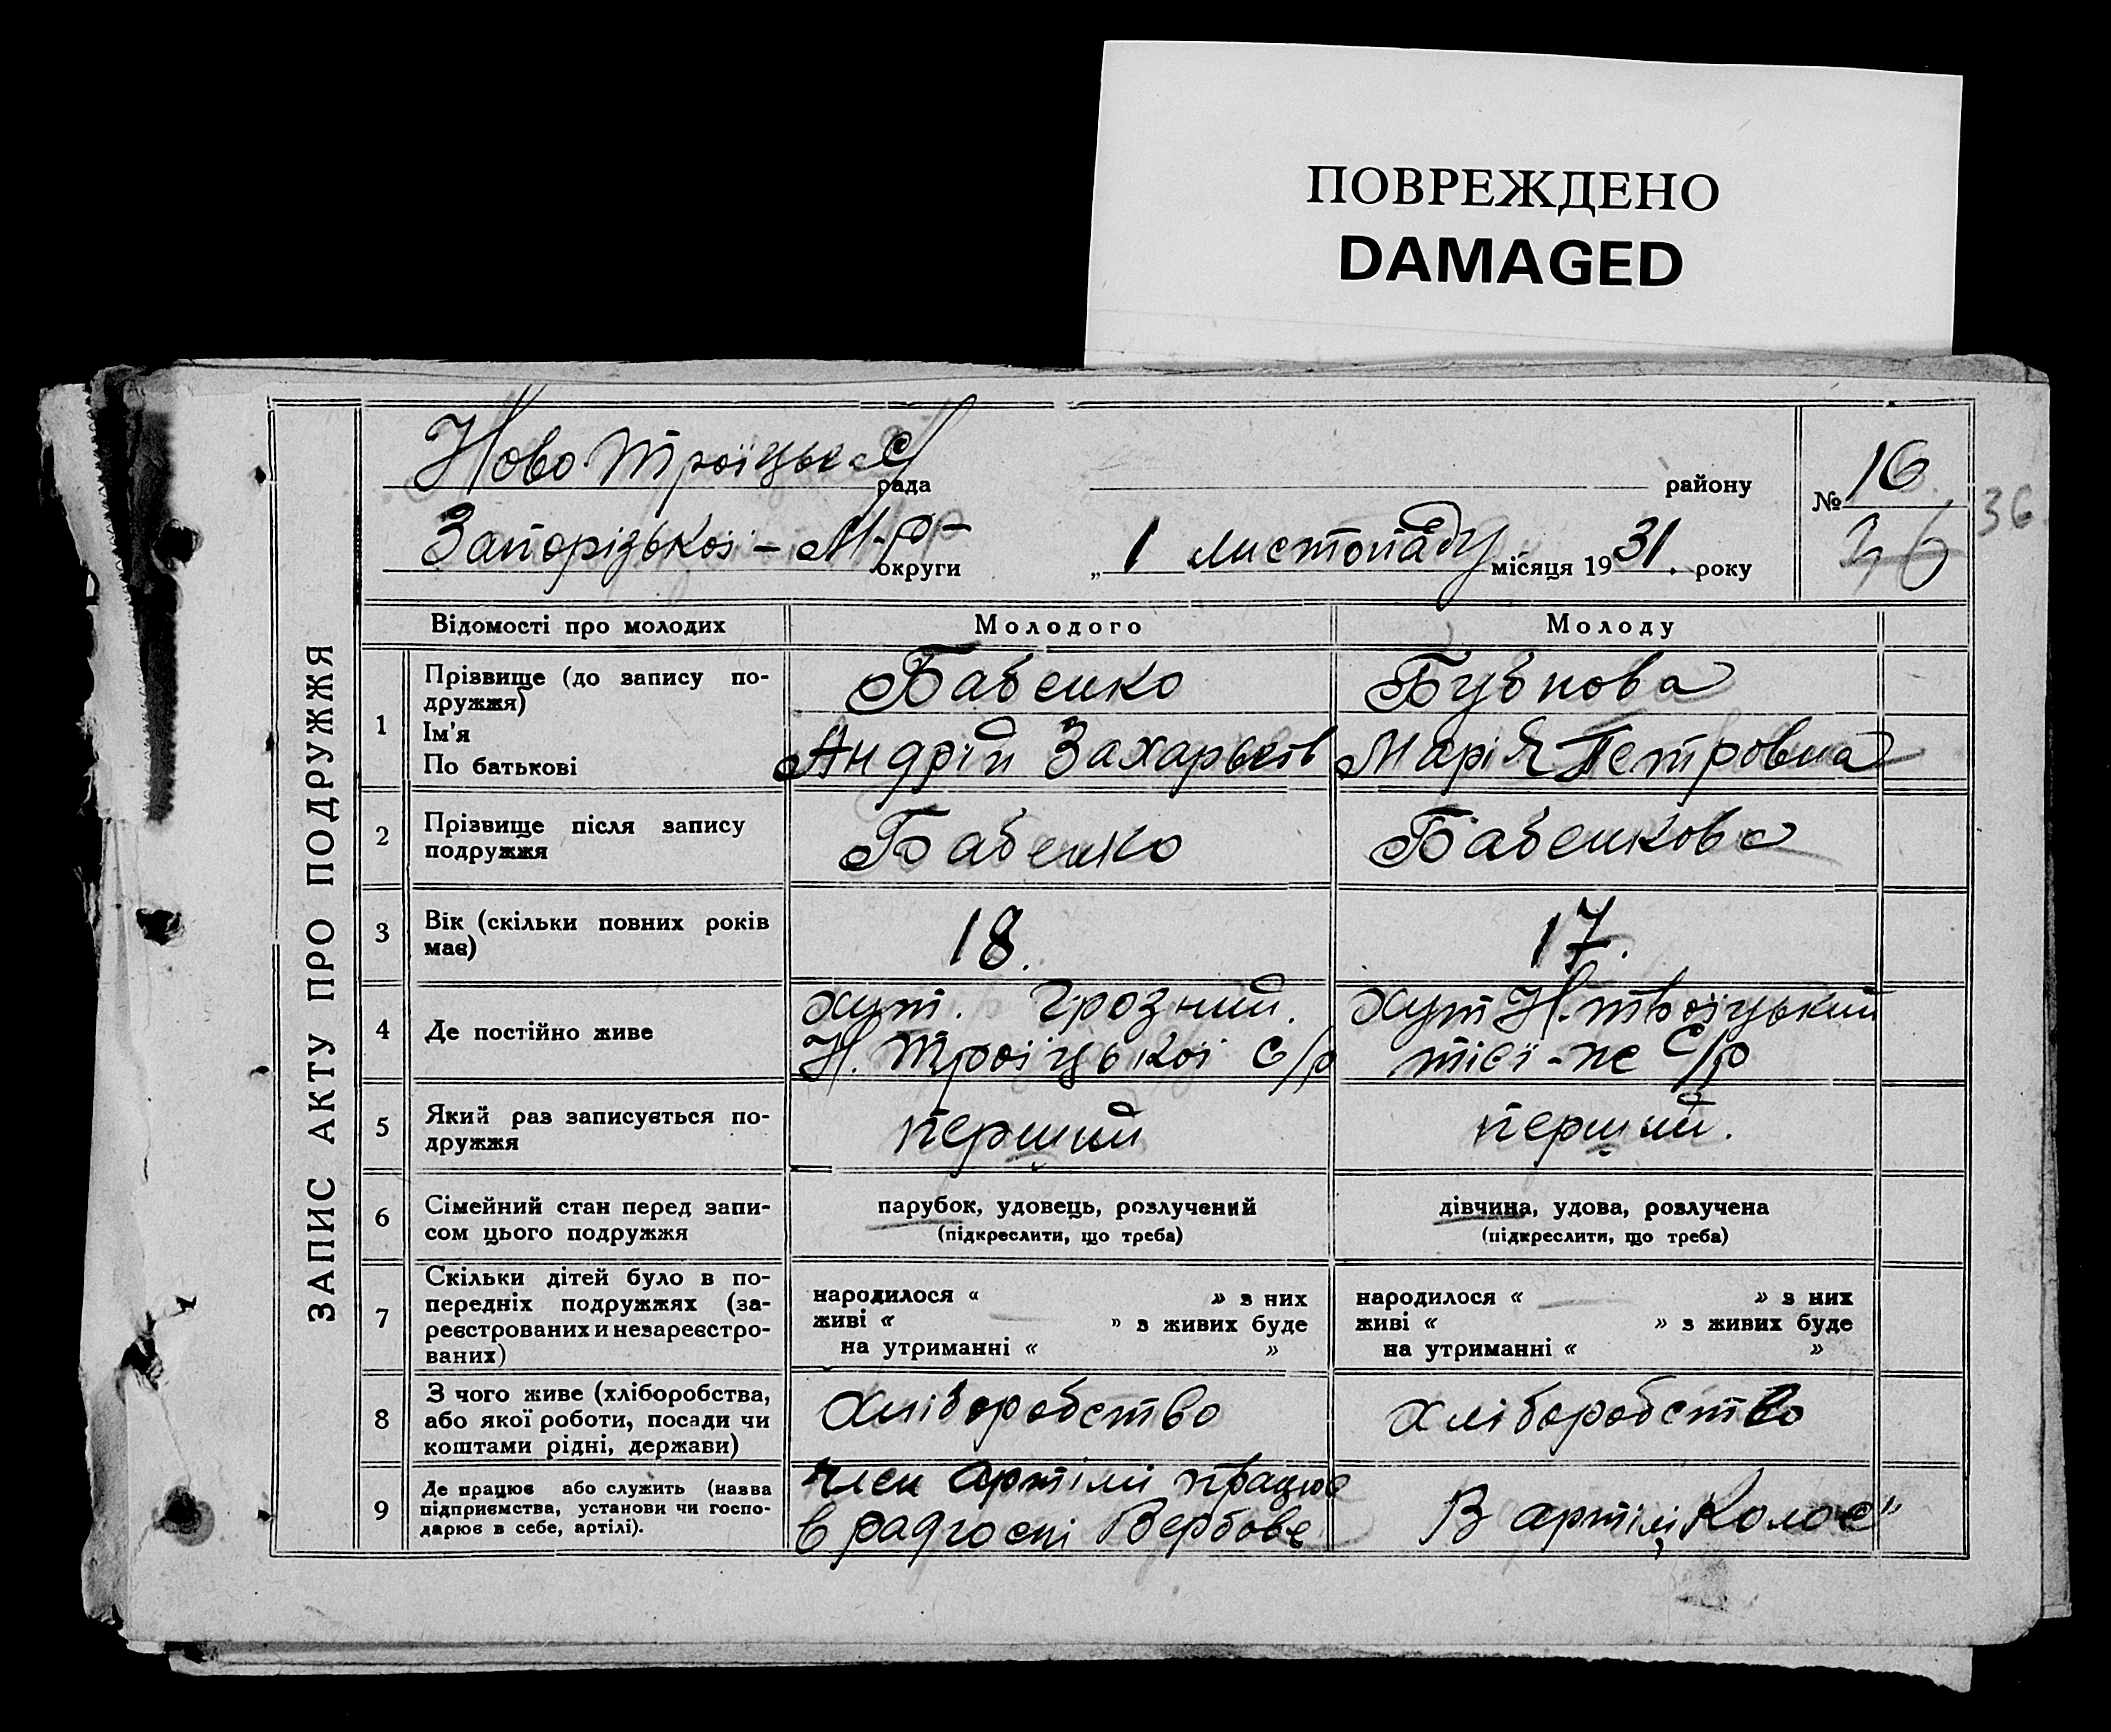 ПОВРЕЖДЕНО
DAMAGED
ЗАПИС АКТУ ПРО ПОДРУЖЖЯ
Ново Троїцька С/
рада
району
№ 16
36
Запорізької - М-р-
округи
„ 1 листопаду місяця 1931. року
26
Відомості про молодих
Молодого
Молоду
1
Прізвище (до запису по-
дружжя)
Ім'я
По батькові
Бабенко
Андрій Захарьєв
Бубнова
Марія Петровна
2
Прізвище після запису
подружжя
Бабенко
Бабенкова
3
Вік (скільки повних років
має)
18.
17.
4
Де постійно живе
хут. Грозний.
Н. Троїцької с/р
хут Н. троїцький
тієї-пе С/р
5
Який раз записується по-
дружжя
перший
перший.
6
Сімейний стан перед запи-
сом цього подружжя
парубок, удовець, розлучений
(підкреслити, що треба)
дівчина, удова, розлучена
(підкреслити, що треба)
7
Скільки дітей було в по-
передніх подружжях (за-
реєстрованих и незареєстро-
ваних)
народилося « » з них
живі « » з живих буде
на утриманні « »
народилося « » з них
живі « » з живих буде
на утриманні « »
8
З чого живе (хліборобства,
або якої роботи, посади чи
коштами рідні, держави)
хліборобство
хліборобство
9
Де працює або служить (назва
підприємства, установи чи госпо-
дарює в себе, артілі).
член артілі працює
в радгоспі Вербове
В артілі „Колос"